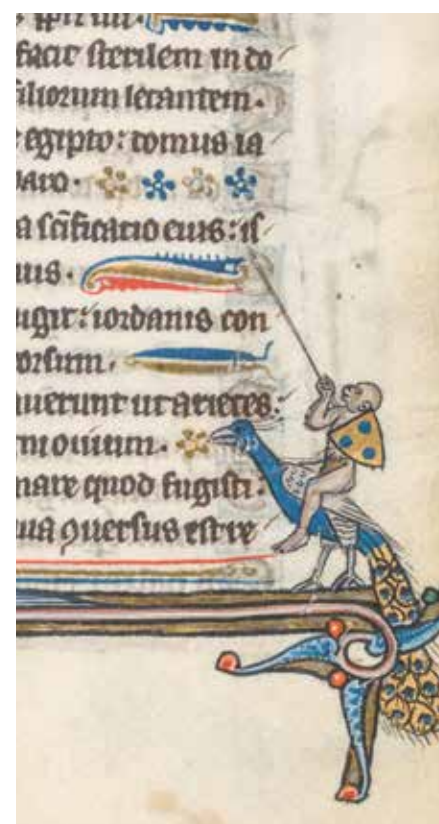 facit sterilem in do
filiorum letantem.
egipto: domus ia
baro.
a scificatio eius: is
uis.
ugit: iordanis con
orsum.
uerunt ut arietes:
ni ouium.
mare quod fugisti:
qua querſus est re